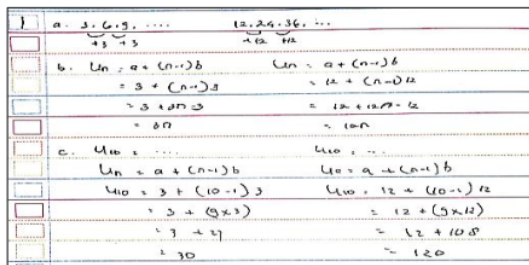 1 a. 3.6.9. .... 12.24.36. ...
+3 +3 +12 +12
b. Un = a + (n-1)b Un = a + (n-1)b
= 3 + (n-1)3 = 12 + (n-1)12
= 3 + 3n-3 = 12 + 12n-12
= 3n = 12n
c. U10 = .... U10 = ...
Un = a + (n-1)b U0 = a + (n-1)b
U10 = 3 + (10-1) 3 U10 = 12 + (10-1) 12
= 3 + (9x3) = 12 + (9x12)
= 3 + 27 = 12 + 108
= 30 = 120